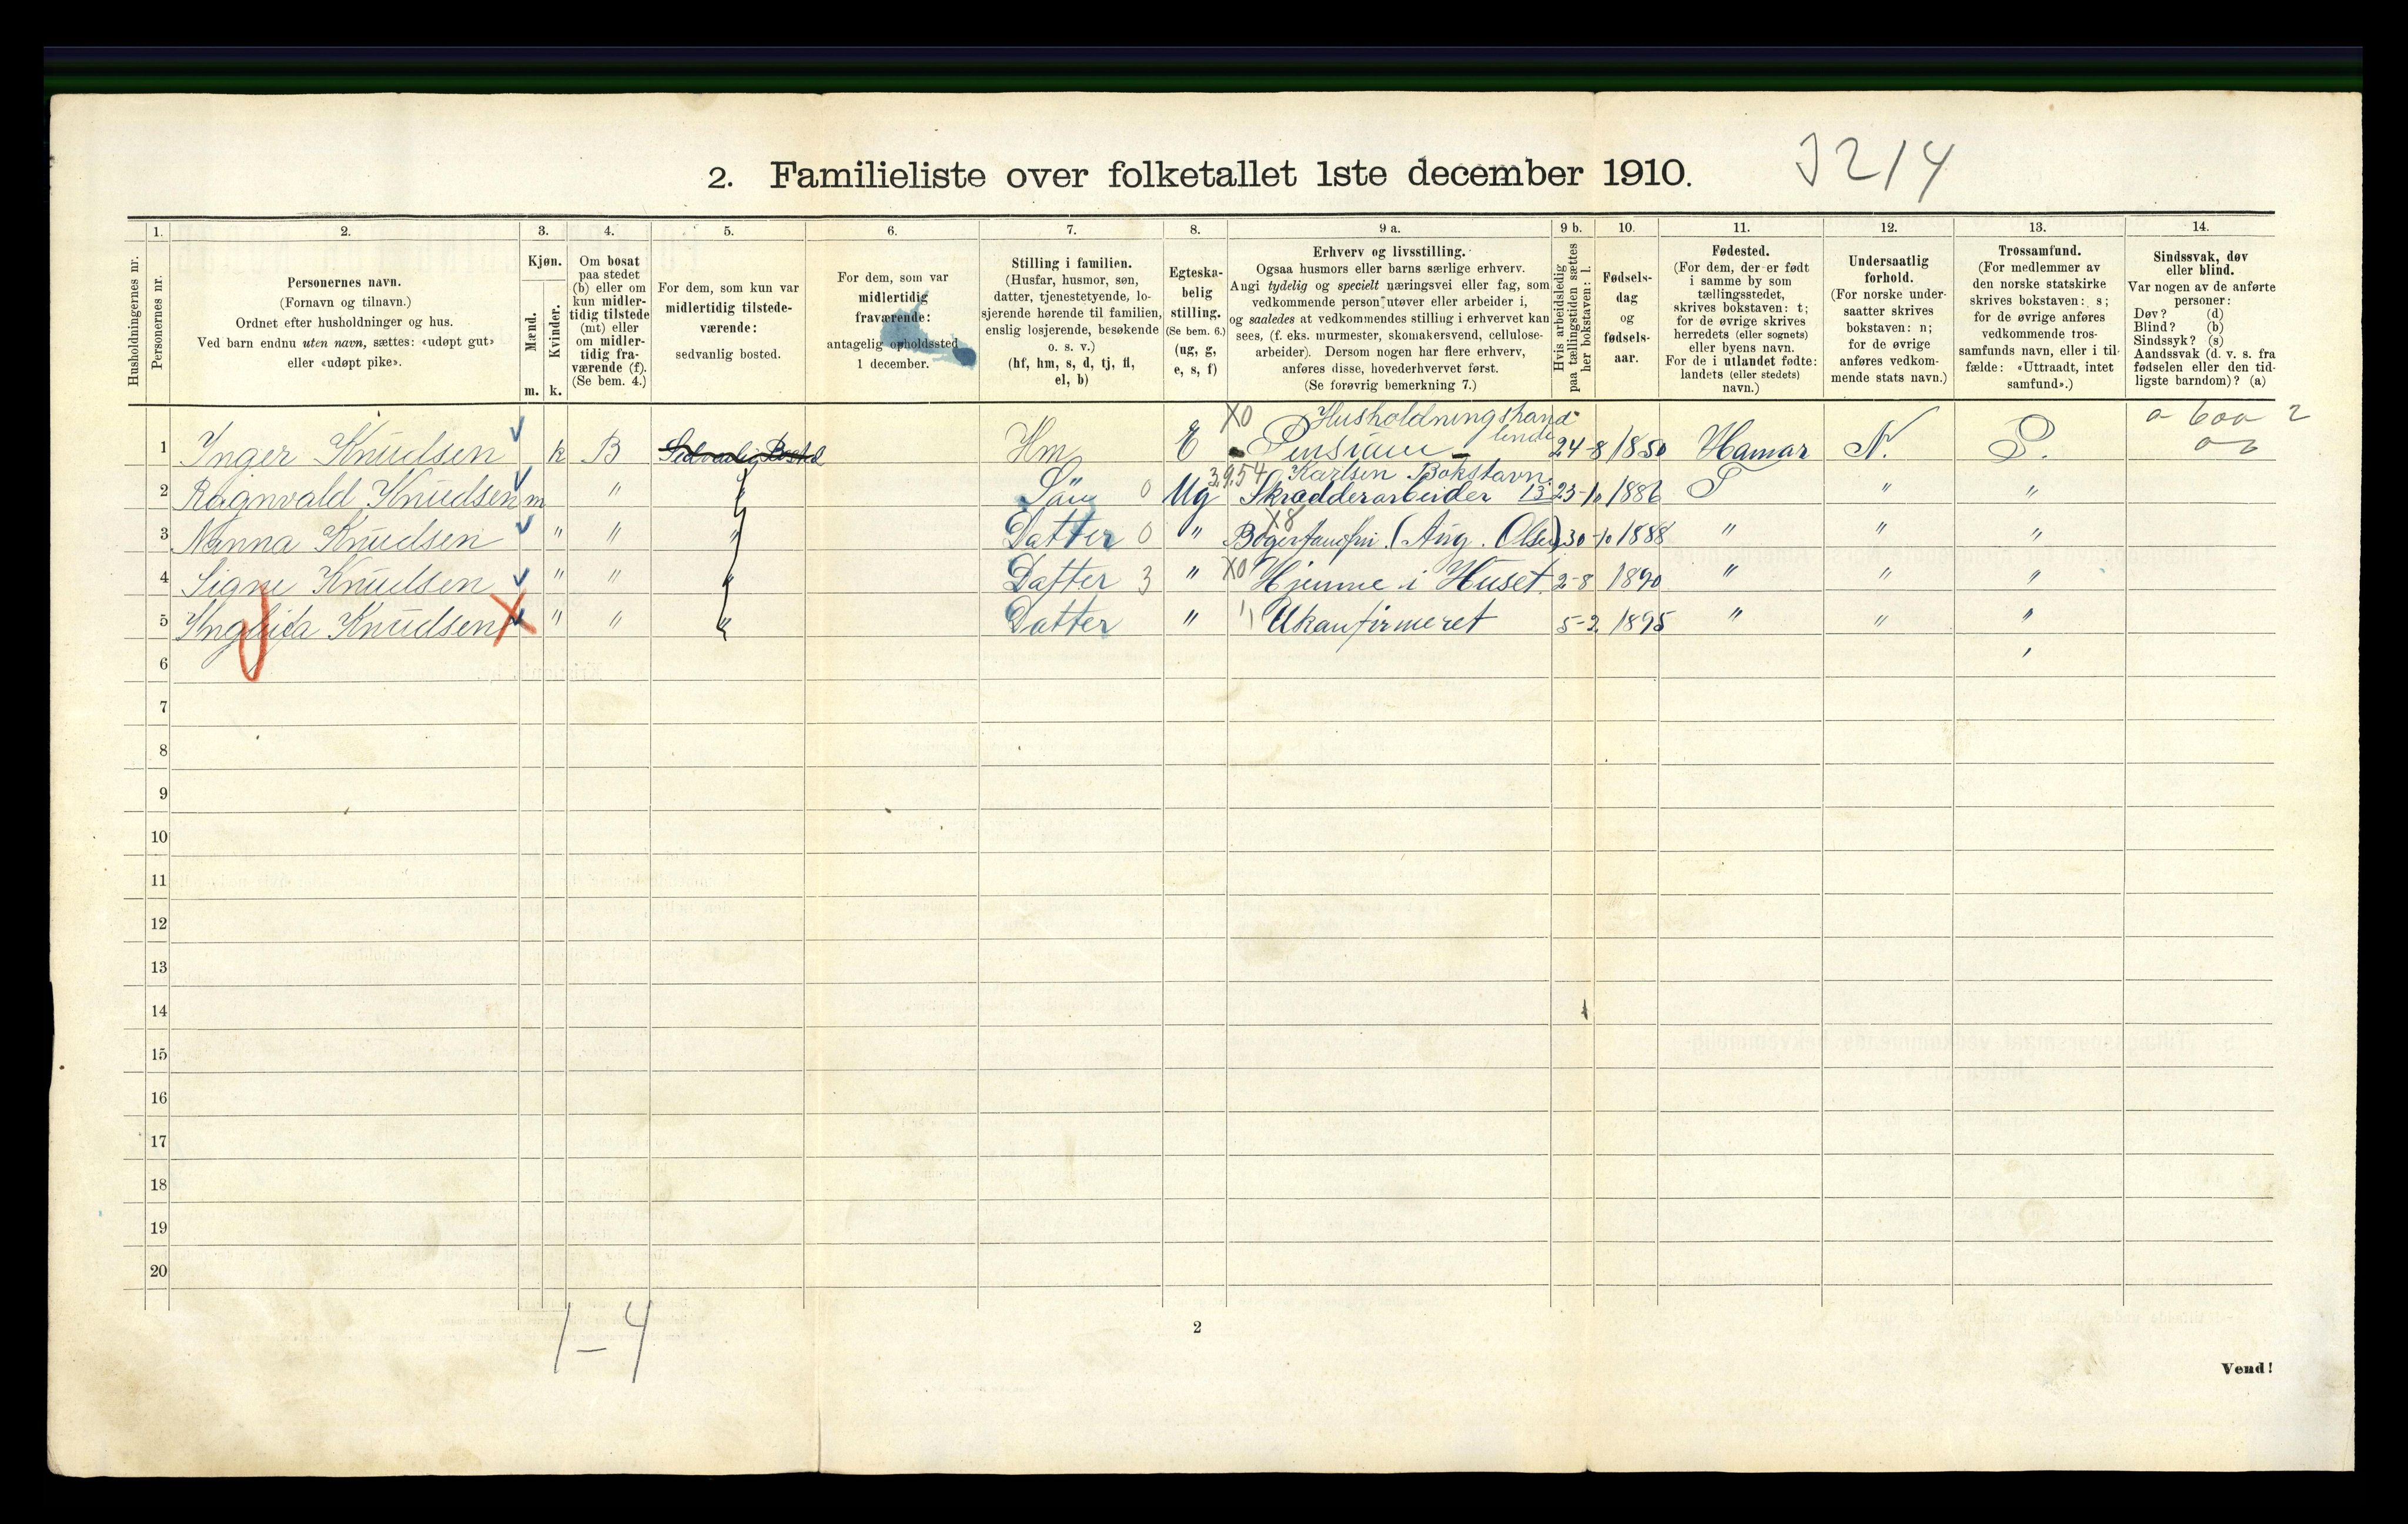 2. Familieliste over folketallet 1ste december 1910.
3214
1. 2. 3. 4. 5. 6. 7. 8. 9 a. 9 b. 10. 11. 12. 13. 14.
Husholdningernes nr.
Personernes nr.
Personernes navn.
(Fornavn og tilnavn.)
Ordnet efter husholdninger og hus.
Ved barn endnu uten navn, sættes: «udøpt gut»
eller «udøpt pike».
Kjøn.
Mænd.
m.
Kvinder.
k.
Om bosat
paa stedet
(b) eller om
kun midler-
tidig tilstede
(mt) eller
om midler-
tidig fra-
værende (f).
(Se bem. 4.)
For dem, som kun var
midlertidig tilstede-
værende:
sedvanlig bosted.
For dem, som var
midlertidig
fraværende:
antagelig opholdssted
1 december.
Stilling i familien.
(Husfar, husmor, søn,
datter, tjenestetyende, lo-
sjerende hørende til familien,
enslig losjerende, besøkende
o. s. v.)
(hf, hm, s, d, tj, fl,
el, b)
Egteska-
belig
stilling.
(Se bem. 6.)
(ug, g,
e, s, f)
Erhverv og livsstilling.
Ogsaa husmors eller barns særlige erhverv.
Angi tydelig og specielt næringsvei eller fag, som
vedkommende person utøver eller arbeider i,
og saaledes at vedkommendes stilling i erhvervet kan
sees, (f. eks. murmester, skomakersvend, cellulose-
arbeider). Dersom nogen har flere erhverv,
anføres disse, hovederhvervet først.
(Se forøvrig bemerkning 7.)
Hvis arbeidsledig
paa tællingstiden sættes
her bokstaven: l.
Fødsels-
dag
og
fødsels-
aar.
Fødested.
(For dem, der er født
i samme by som
tællingsstedet,
skrives bokstaven: t;
for de øvrige skrives
herredets (eller sognets)
eller byens navn.
For de i utlandet fødte:
landets (eller stedets)
navn.)
Undersaatlig
forhold.
(For norske under-
saatter skrives
bokstaven: n;
for de øvrige
anføres vedkom-
mende stats navn.)
Trossamfund.
(For medlemmer av
den norske statskirke
skrives bokstaven: s;
for de øvrige anføres
vedkommende tros-
samfunds navn, eller i til-
fælde: «Uttraadt, intet
samfund».)
Sindssvak, døv
eller blind.
Var nogen av de anførte
personer:
Døv? (d)
Blind? (b)
Sindssyk? (s)
Aandssvak (d. v. s. fra
fødselen eller den tid-
ligste barndom)? (a)
X0 Husholdningshand
1 Inger Knudsen k B Sedvanlig Bosted Hm E Pension 24-8 1850 Hamar N. S.
3.9.54 Karlsen Bokstavn.
2 Ragnvald Knudsen m " " Sön 0 Ug Skrædderarbeider 13 23-10 1886 T " "
X8
3 Nanna Knudsen " " " Datter 0 " (Aug. Olsen) 30-10 1888 " " "
4 Signe Knudsen " " " Datter 3 " X0 Hjemme i Huset 2-8 1890 " " "
5 Knudsen " " " Datter " Ukonfirmeret 5-2 1895 " " "
6
7
8
9
10
11
12
13
14
15
16
17
18
19
20
1-4
2
Vend!